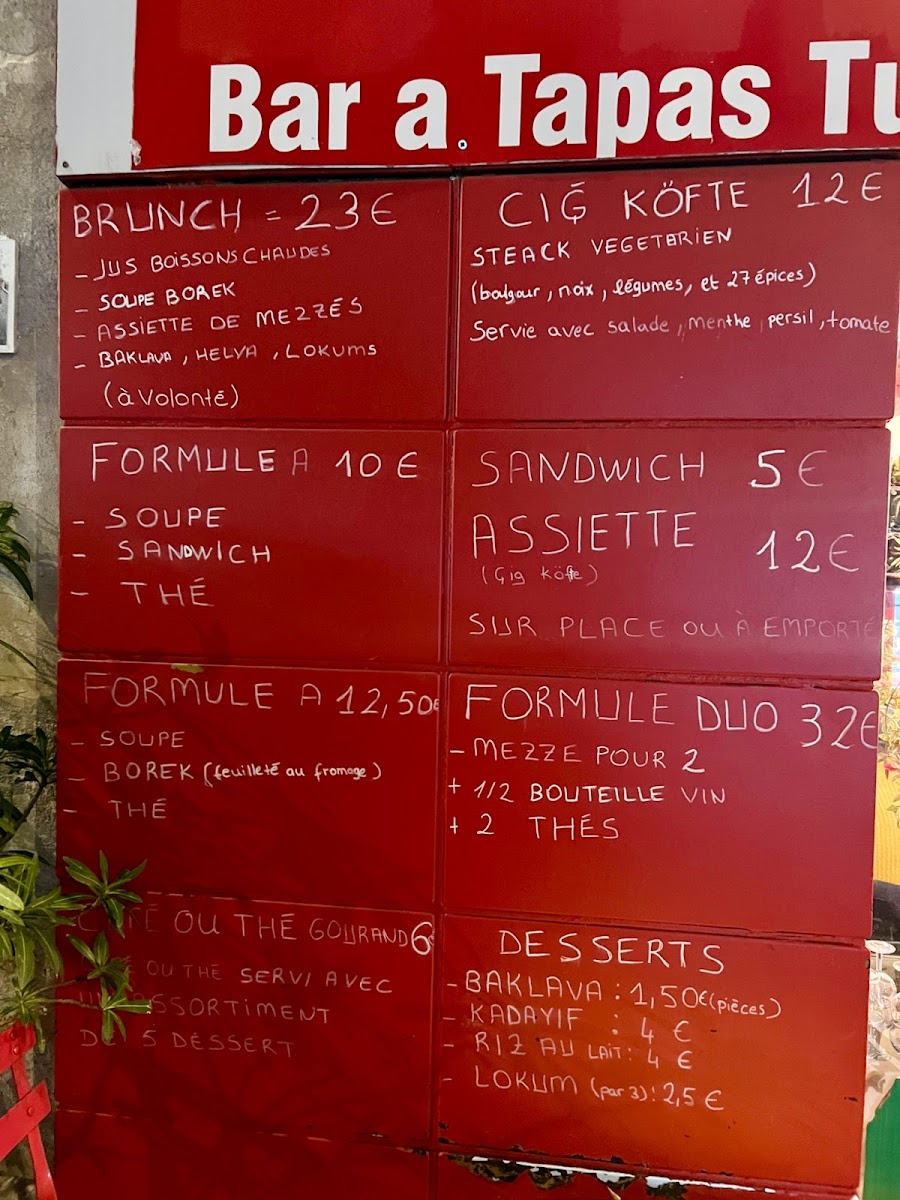 Bar a Tapas Tu
BRUNCH = 23€
- JUS BOISSONS CHAUDES
- SOUPE BOREK
- ASSIETTE DE MEZZÉS
- BAKLAVA, HELVA, LOKUMS
(à volonté)
CIĞ KÖFTE 12€
STEACK VEGETARIEN
(boulgour, noix, légumes, et 27 épices)
Servie avec salade, menthe, persil, tomate
FORMULE A 10€
- SOUPE
- SANDWICH
- THÉ
SANDWICH 5€
ASSIETTE 12€
(Çig Köfte)
SUR PLACE OU À EMPORTÉ
FORMULE A 12,50€
- SOUPE
- BOREK (feuilleté au fromage)
- THÉ
FORMULE DUO 32€
- MEZZE POUR 2
+ 1/2 BOUTEILLE VIN
+ 2 THÉS
OU THÉ GOURAND 6
OU THÉ SERVI AVEC
ASSORTIMENT
5 DESSERT
DESSERTS
- BAKLAVA : 1,50€ (pièces)
- KADAYIF : 4 €
- RIZ AU LAIT : 4 €
- LOKUM (par 3) : 2,5 €